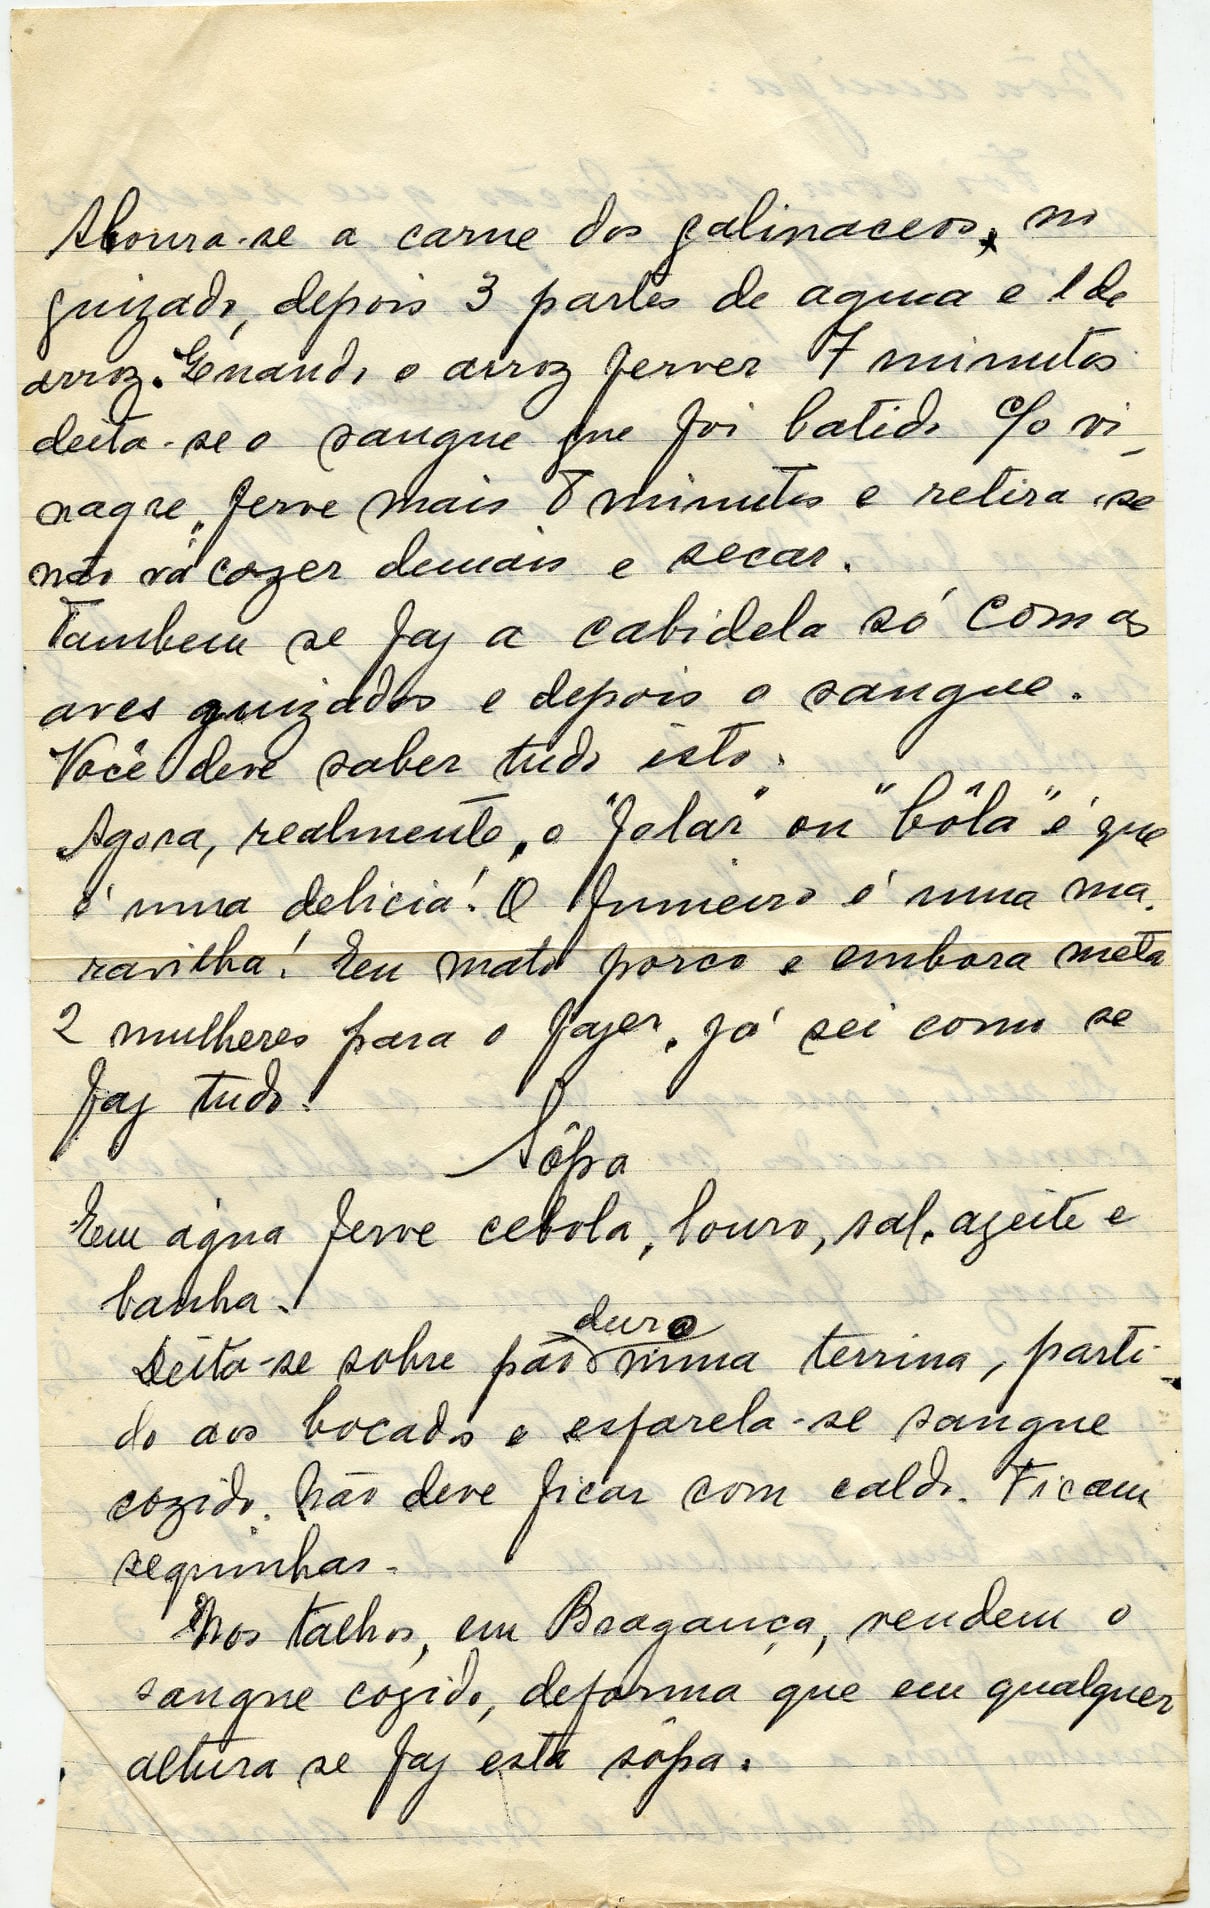 Aloura-se a carne dos galinaceos, no
guizado, depois 3 partes de agua e 1 de
arroz. Quando o arroz ferver 7 minutos
deita-se o sangue que foi batido c/o vi-
nagre, ferve mais 8 minutos e retira-se
não vá cozer demais e secar.
Tambem se faz a cabidela só com as
aves guizados e depois o sangue.
Você deve saber tudo isto.
Agora, realmente, o "folar" ou "bôla" é que
é uma delicia! O fumeiro é uma ma-
ravilha! Eu mato porco e embora meta
2 mulheres para o fazer, já sei como se
faz tudo.
Sôpa
Em água ferve cebola, louro, sal, azeite e
banha.
duro
Deita-se sobre pão numa terrina, parti-
do aos bocados e esfarela-se sangue
cozido. Não deve ficar com caldo. Ficam
sequinhas.
Nos talhos, em Bragança, vendem o
sangue cozido, deforma que em qualquer
altura se faz esta sôpa.